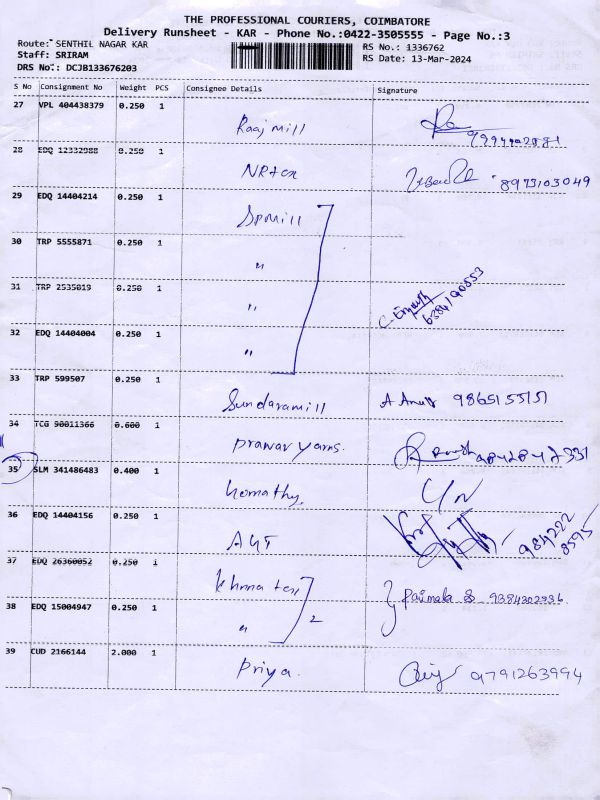 THE PROFESSIONAL COURIERS, COIMBATORE
Delivery Runsheet - KAR - Phone No.:0422-3505555 - Page No.:3
Route: SENTHIL NAGAR KAR
Staff: SRIRAM
DRS No.: DCJB133676203
RS No.: 1336762
RS Date: 13-Mar-2024
S No Consignment No Weight PCS Consignee Details Signature
27 VPL 404438379 0.250 1
Raaj mill
28 EDQ 12332988 0.250 1
8973103049
29 EDQ 14404214 0.250 1
Spmill
30 TRP 5555871 0.250 1
"
31 TRP 2535019 0.250 1
"
6384190553
32 EDQ 14404004 0.250 1
"
33 TRP 599507 0.250 1
Sundaramill 9865155151
34 TCG 90011366 0.600 1
Pranav yarns.
35 SLM 341486483 0.400 1
homathy
36 EDQ 14404156 0.250 1
984222
8595
37 EDQ 26360052 0.250 1
9384302936
38 EDQ 15004947 0.250 1
" 2
39 CUD 2166144 2.000 1
Priya. 9791263994